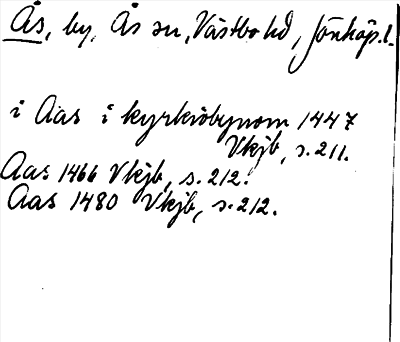 Ås, by, Ås sn, Västbo hd, Jönköp. l.
i Aas i kyrkiobynom 1447
Vkjb, s. 211.
Aas 1466 Vkjb, s. 212.
Aas 1480 Vkjb, s. 212.